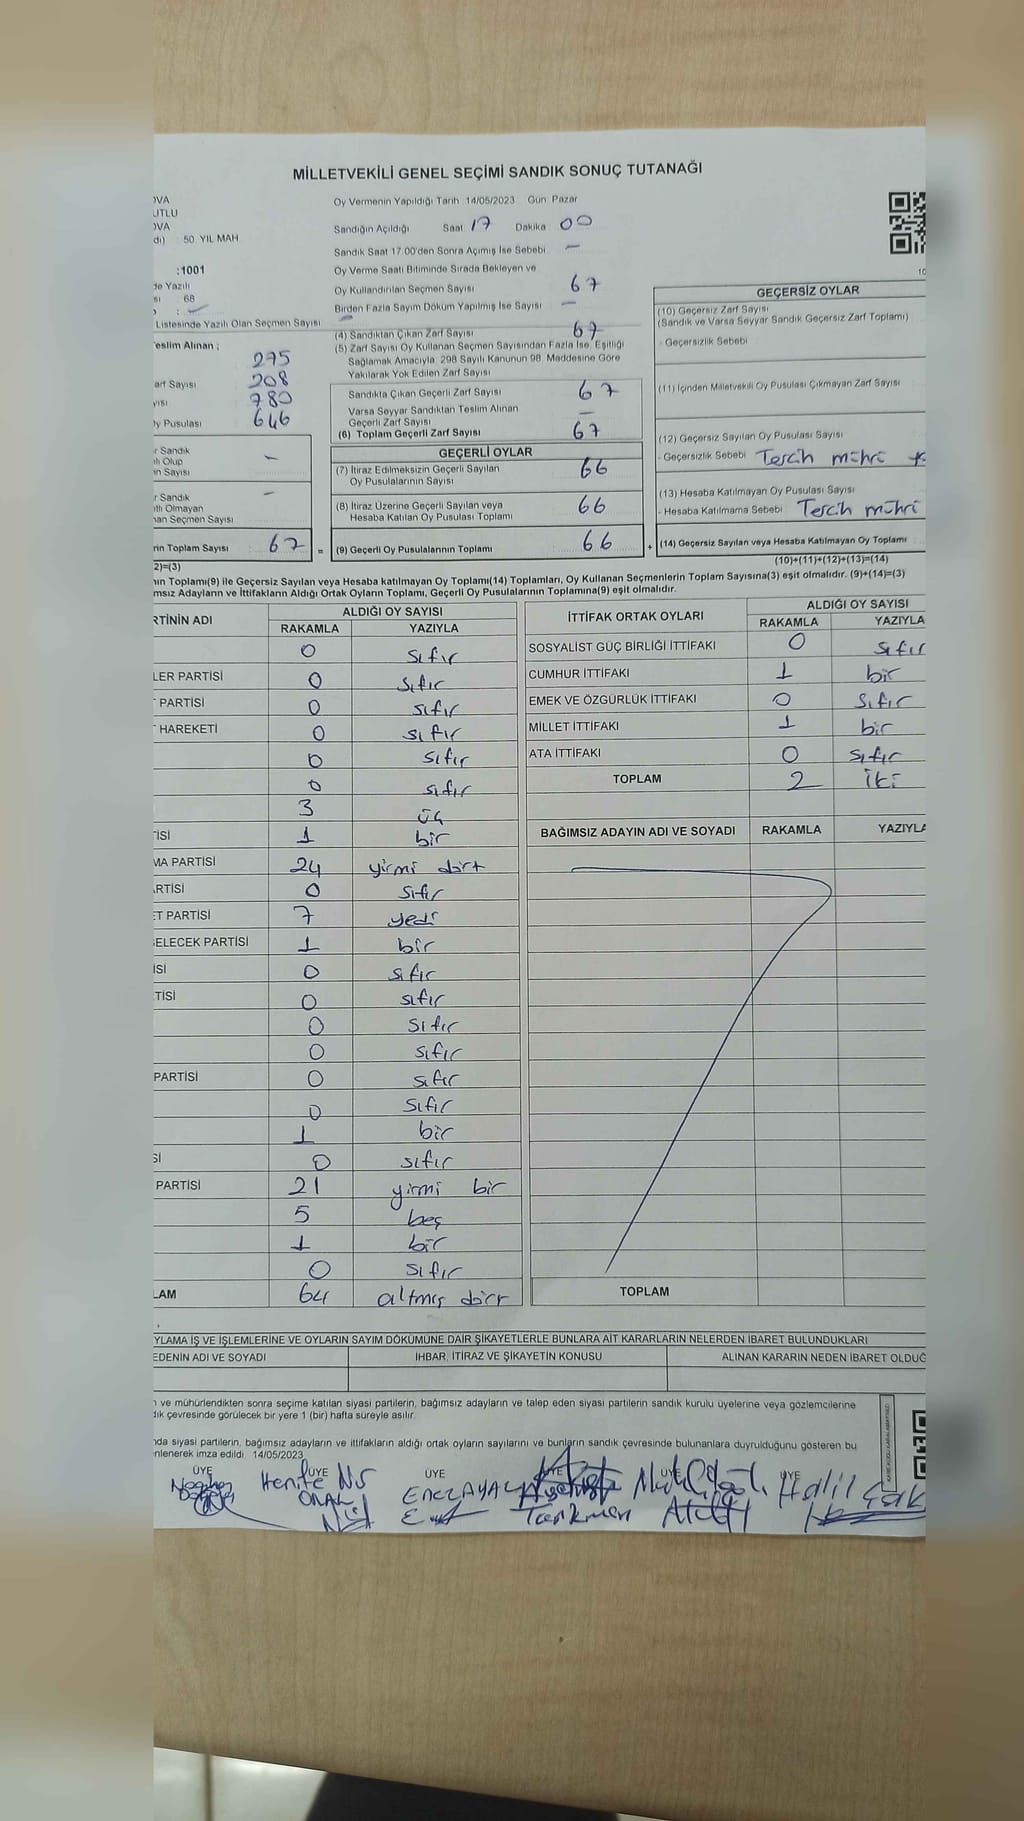 MİLLETVEKİLİ GENEL SEÇİMİ SANDIK SONUÇ TUTANAĞI
OVA
UTLU
OVA
dı) 50. YIL MAH
:1001
de Yazılı
sı 68
Listesinde Yazılı Olan Seçmen Sayısı
Teslim Alınan ;
275
arf Sayısı 208
yısı 780
Oy Pusulası 646
r Sandık
lı Olup
n Sayısı –
r Sandık
tlı Olmayan
nan Seçmen Sayısı –
rin Toplam Sayısı 67 =
2)=(3)
Oy Vermenin Yapıldığı Tarih 14/05/2023 Gün Pazar
Sandığın Açıldığı Saat 17 Dakika 00
Sandık Saat 17:00'den Sonra Açımış İse Sebebi –
Oy Verme Saati Bitiminde Sırada Bekleyen ve
Oy Kullandırılan Seçmen Sayısı 67
Birden Fazla Sayım Döküm Yapılmış İse Sayısı –
(4) Sandıktan Çıkan Zarf Sayısı 67
(5) Zarf Sayısı Oy Kullanan Seçmen Sayısından Fazla İse, Eşitliği
Sağlamak Amacıyla, 298 Sayılı Kanunun 98. Maddesine Göre
Yakılarak Yok Edilen Zarf Sayısı
Sandıkta Çıkan Geçerli Zarf Sayısı 67
Varsa Seyyar Sandıktan Teslim Alınan
Geçerli Zarf Sayısı –
(6) Toplam Geçerli Zarf Sayısı 67
GEÇERLİ OYLAR
(7) İtiraz Edilmeksizin Geçerli Sayılan
Oy Pusulalarının Sayısı 66
(8) İtiraz Üzerine Geçerli Sayılan veya
Hesaba Katılan Oy Pusulası Toplamı 66
(9) Geçerli Oy Pusulalarının Toplamı 66 +
GEÇERSİZ OYLAR
(10) Geçersiz Zarf Sayısı
(Sandık ve Varsa Seyyar Sandık Geçersiz Zarf Toplamı)
- Geçersizlik Sebebi
(11) İçinden Milletvekili Oy Pusulası Çıkmayan Zarf Sayısı
(12) Geçersiz Sayılan Oy Pusulası Sayısı
- Geçersizlik Sebebi Tercih mührü
(13) Hesaba Katılmayan Oy Pusulası Sayısı
- Hesaba Katılmama Sebebi Tercih mührü
(14) Geçersiz Sayılan veya Hesaba Katılmayan Oy Toplamı
(10)+(11)+(12)+(13)=(14)
nın Toplamı(9) ile Geçersiz Sayılan veya Hesaba katılmayan Oy Toplamı(14) Toplamları, Oy Kullanan Seçmenlerin Toplam Sayısına(3) eşit olmalıdır. (9)+(14)=(3)
msız Adayların ve İttifakların Aldığı Ortak Oyların Toplamı, Geçerli Oy Pusulalarının Toplamına(9) eşit olmalıdır.
RTİNİN ADI ALDIĞI OY SAYISI
RAKAMLA YAZIYLA
0 sıfır
LER PARTİSİ 0 sıfır
PARTİSİ 0 sıfır
HAREKETİ 0 sıfır
0 sıfır
0 sıfır
3 üç
İSİ 1 bir
MA PARTİSİ 24 yirmi dört
ARTİSİ 0 sıfır
ET PARTİSİ 7 yedi
GELECEK PARTİSİ 1 bir
İSİ 0 sıfır
TİSİ 0 sıfır
0 sıfır
0 sıfır
PARTİSİ 0 sıfır
0 sıfır
1 bir
Sİ 0 sıfır
PARTİSİ 21 yirmi bir
5 beş
1 bir
0 sıfır
LAM 64 altmış dört
İTTİFAK ORTAK OYLARI ALDIĞI OY SAYISI
RAKAMLA YAZIYLA
SOSYALİST GÜÇ BİRLİĞİ İTTİFAKI 0 sıfır
CUMHUR İTTİFAKI 1 bir
EMEK VE ÖZGÜRLÜK İTTİFAKI 0 sıfır
MİLLET İTTİFAKI 1 bir
ATA İTTİFAKI 0 sıfır
TOPLAM 2 iki
BAĞIMSIZ ADAYIN ADI VE SOYADI RAKAMLA YAZIYLA
TOPLAM
YLAMA İŞ VE İŞLEMLERİNE VE OYLARIN SAYIM DÖKÜMÜNE DAİR ŞİKAYETLERLE BUNLARA AİT KARARLARIN NELERDEN İBARET BULUNDUKLARI
EDENİN ADI VE SOYADI İHBAR, İTİRAZ VE ŞİKAYETİN KONUSU ALINAN KARARIN NEDEN İBARET OLDUĞ
n ve mühürlendikten sonra seçime katılan siyasi partilerin, bağımsız adayların ve talep eden siyasi partilerin sandık kurulu üyelerine veya gözlemcilerine
dık çevresinde görülecek bir yere 1 (bir) hafta süreyle asılır.
nda siyasi partilerin, bağımsız adayların ve ittifakların aldığı ortak oyların sayılarını ve bunların sandık çevresinde bulunanlara duyrulduğunu gösteren bu
nlenerek imza edildi. 14/05/2023
ÜYE ÜYE ÜYE ÜYE ÜYE ÜYE
Henife Nur
Türkmen
Halil